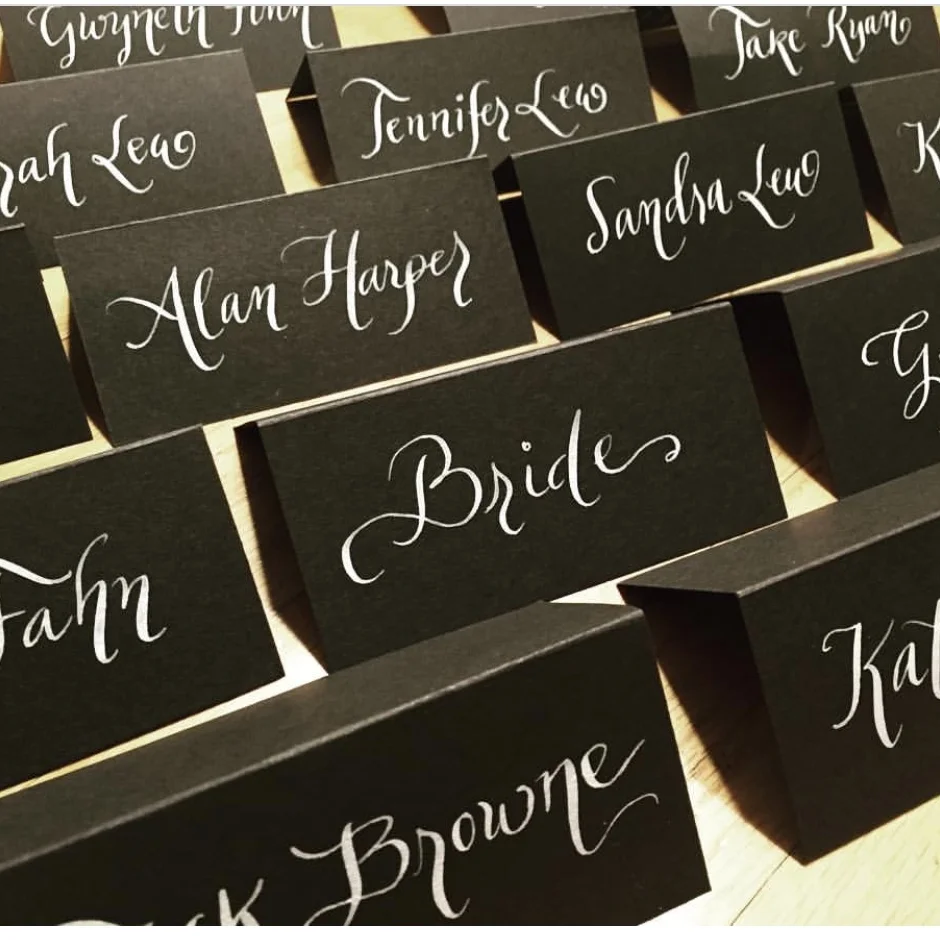 Gwyneth
Jake Ryan
Jennifer Lew
Lew
Sandra Lew
K
Alan Harper
G
Bride
Fahn
Browne